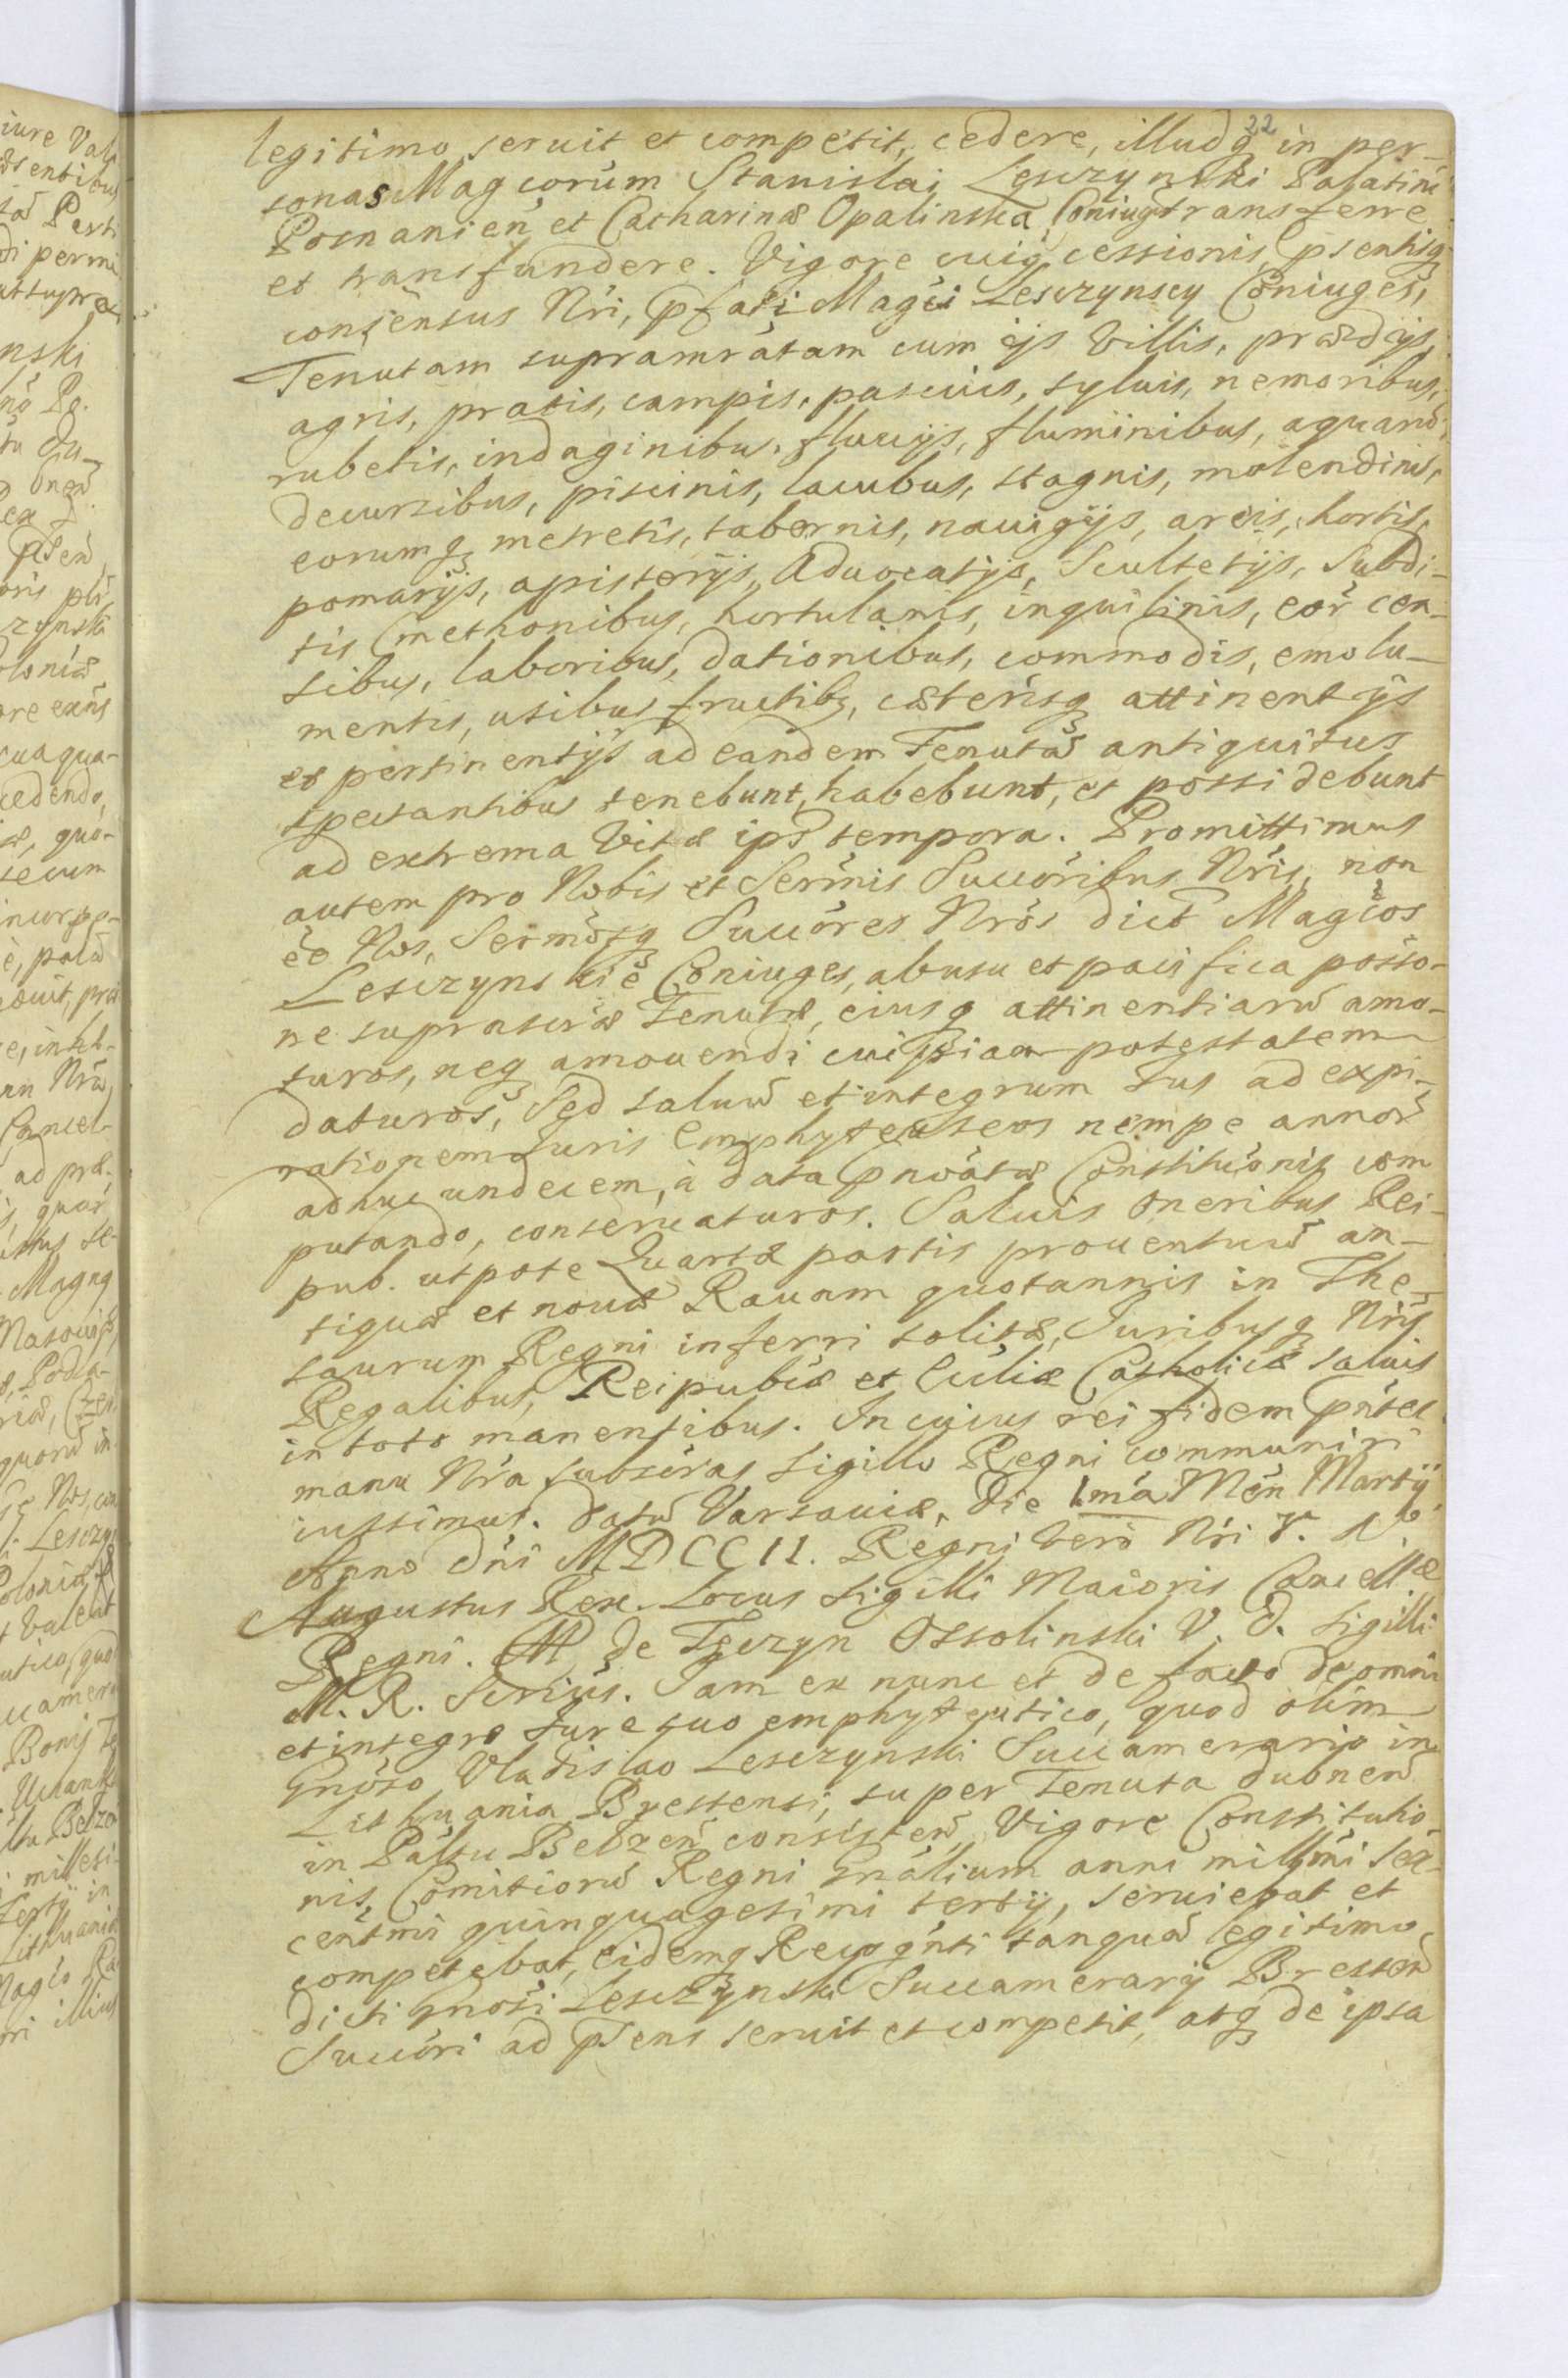 22
legitimo seruit et competit, cedere, illudq in per-
sonas Magcorum Stanislai Lesczynski Palatini
Posnanien et Catharinæ Opalinska Coniugũ transferre
et transfundere. Vigore cuiq cessionis, psentisq
consensus Nri, pfati Magci Lesczynscy Coniuges,
Tenutam supramratam cum ijs Villis, prædijs,
agris, pratis, campis, pascuis, syluis, nemoribus,
rubetis, indaginibus, fluuijs, fluminibus, aquarũ
decursibus, piscinis, lacubus, stagnis, molendinis,
eorumq metretis, tabernis, nauigijs, areis, hortis,
pomarijs, apisterijs, Aduocatijs, Scultetijs, Subdi-
tis Cmethonibus, hortulanis, inquilinis, eor cen-
sibus, laboribus, dationibus, commodis, emolu-
mentis, usibus fructibq, cæterisq attinentijs
et pertinentijs ad eandem Tenutã antiquitus
spectantibus tenebunt, habebunt, et possidebunt
ad extrema Vitæ ips tempora. Promittimus
autem pro Nobis et Sermis Succoribus Nris, non
ee Nos, Sermosq Succores Nros dict Magcos
Lesczynskie Coniuges, ab usu et pacifica posso-
ne suprascræ Tenutæ, eiusq attinentiarũ amo-
turos, neq amouendi cuipiam potestatem
daturos, Sed saluũ et integrum Ius ad expi-
rationem Iuris Emphyteuseos nempe annorũ
adhuc undecem, à data pnoatæ Constitucionis com
putando, conseruaturos. Saluis oneribus Rei-
pub. utpote Quartæ partis prouentuũ an-
tiquæ et nouæ Rauam quotannis in The-
saurum Regni inferri solitæ, Iuribusq Nris
Regalibus, Reipublæ et Ecliæ Catholicæ saluis
in toto manentibus. In cuius rei fidem pntes
manu Nra subscras sigillo Regni communiri
iussimus. Datũ Varsauiæ, Die 1ma Men Martij
Anno Dni MDCCII. Regni vero Nri V. Ao
Augustus Rex. Locus Sigilli Maioris Cancellæ
Regni. M de Tęczyn Ossolinski V. D. Sigilli
M. R. Scrius. Iam ex nunc et de facto de omni
et integro Iure suo emphyteutico, quod olim
Gnoso Vladislao Lesczynski Succamerario in
Lithuania Brestensi, super Tenuta Dubnen
in Paltu Belzen consisten, Vigore Constitutio-
nis, Comitiorũ Regni Gnalium anni millmi sex
centmi quinquagesimi tertij, seruiebat et
competebat, eidemq Recognti tanquã legitimo
dicti Gnosi Lesczynski Succamerarij Bresten
Succori ad psens seruit et competit, atq de ipsa